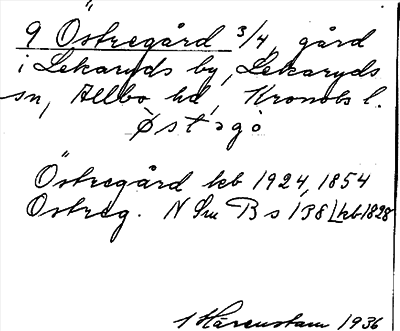 9 Östregård 3/4, gård
i Lekaryds by, Lekaryds
sn, Allbo hd, Kronobs l.
Östregård kb 1924, 1854
Ostreg. N Sm B s 138 [kb 1828
1 Härenstam 1936